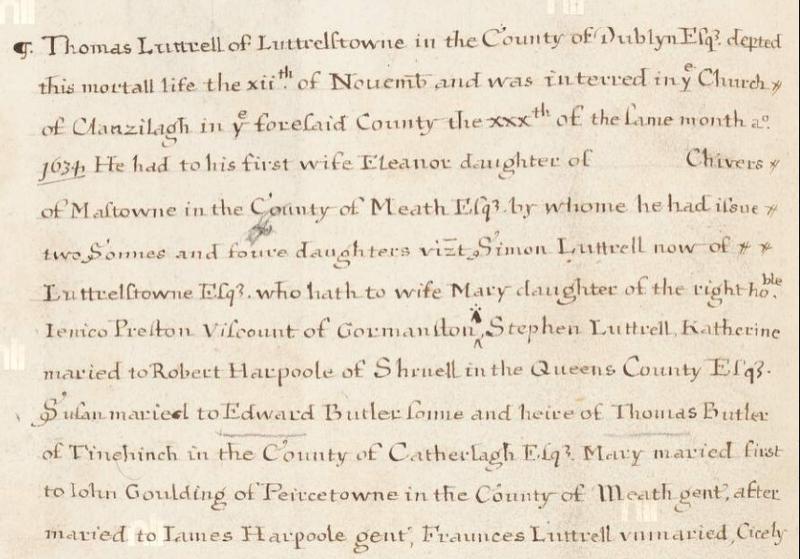 ¶. Thomas Luttrell of Luttrelstowne in the County of Dublyn Esqꝫ. depted
this mortall life the xiiᵗʰ. of Nouemb̄ and was interred in yᵉ Church
of Clanzilagh in yᵉ foresaid County the xxxᵗʰ of the same month aᵒ.
1634, He had to his first wife Eleanor daughter of Chivers
of Mastowne in the County of Meath Esqꝫ. by whome he had issue
two Sonnes and foure daughters vizt̄ Simon Luttrell now of
Luttrelstowne Esqꝫ. who hath to wife Mary daughter of the right hoᵇˡᵉ.
Ienico Preston Viscount of Gormanston, Stephen Luttrell, Katherine
maried to Robert Harpoole of Shruell in the Queens County Esqꝫ.
Susan maried to Edward Butler sonne and heire of Thomas Butler
of Tinehinch in the County of Catherlagh Esqꝫ. Mary maried first
to Iohn Goulding of Peircetowne in the County of Meath gent, after
maried to Iames Harpoole gent, Fraunces Luttrell vnmaried, Cicely